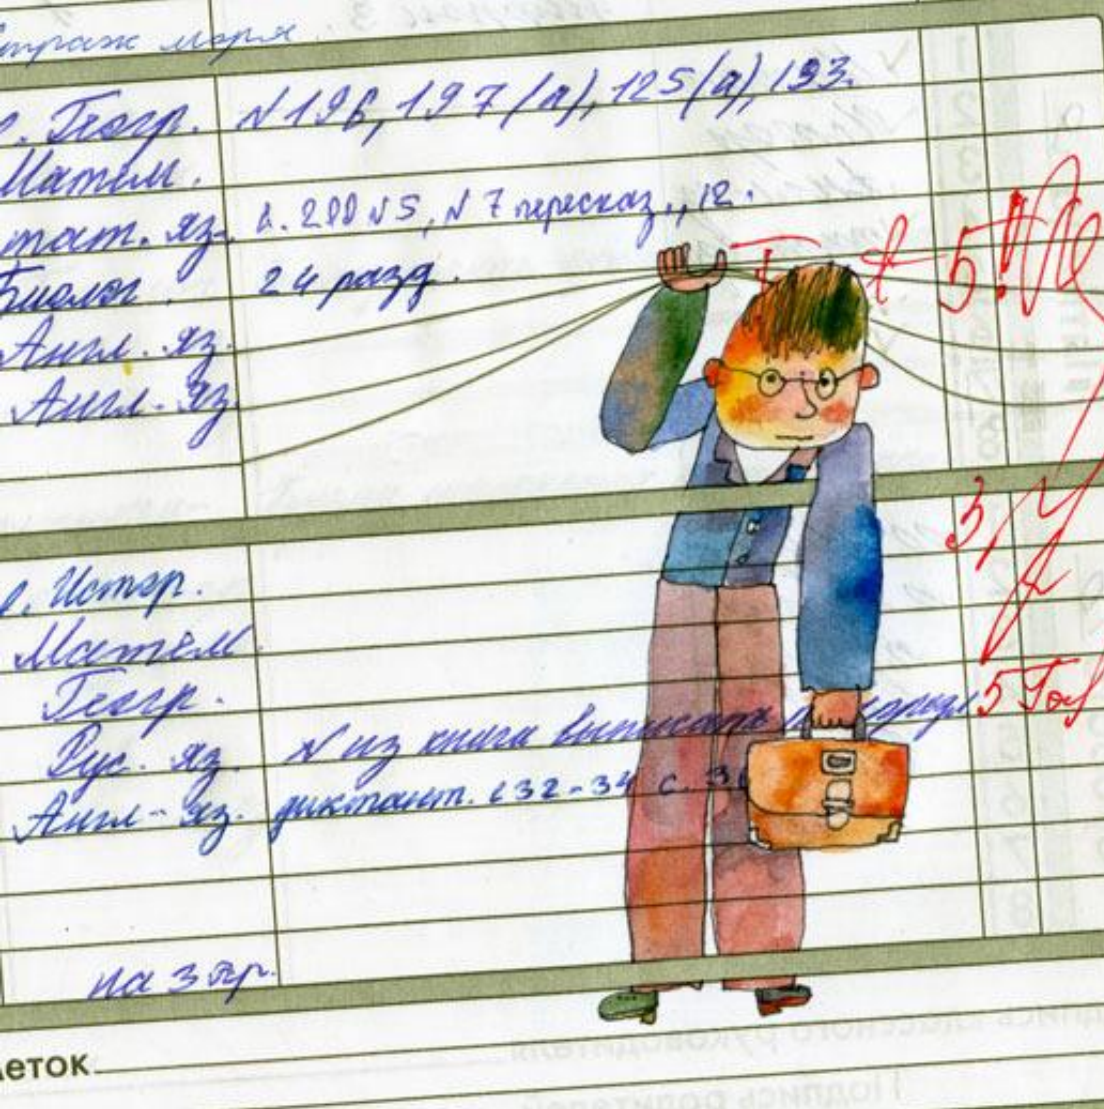 страж моря..
Геогр. N196, 197(а), 125(а), 193.
Матем.
тат. яз. с. 200 N5, N7 пересказ., 12.
Биолог. 24 разд.
Англ. яз.
Англ. яз
5
3,
Истор.
Матем.
Геогр.
5
Рус. яз. N из книги выписать
Англ. яз. диктант. с 32-34 с. 3
на 3 пр.
еток